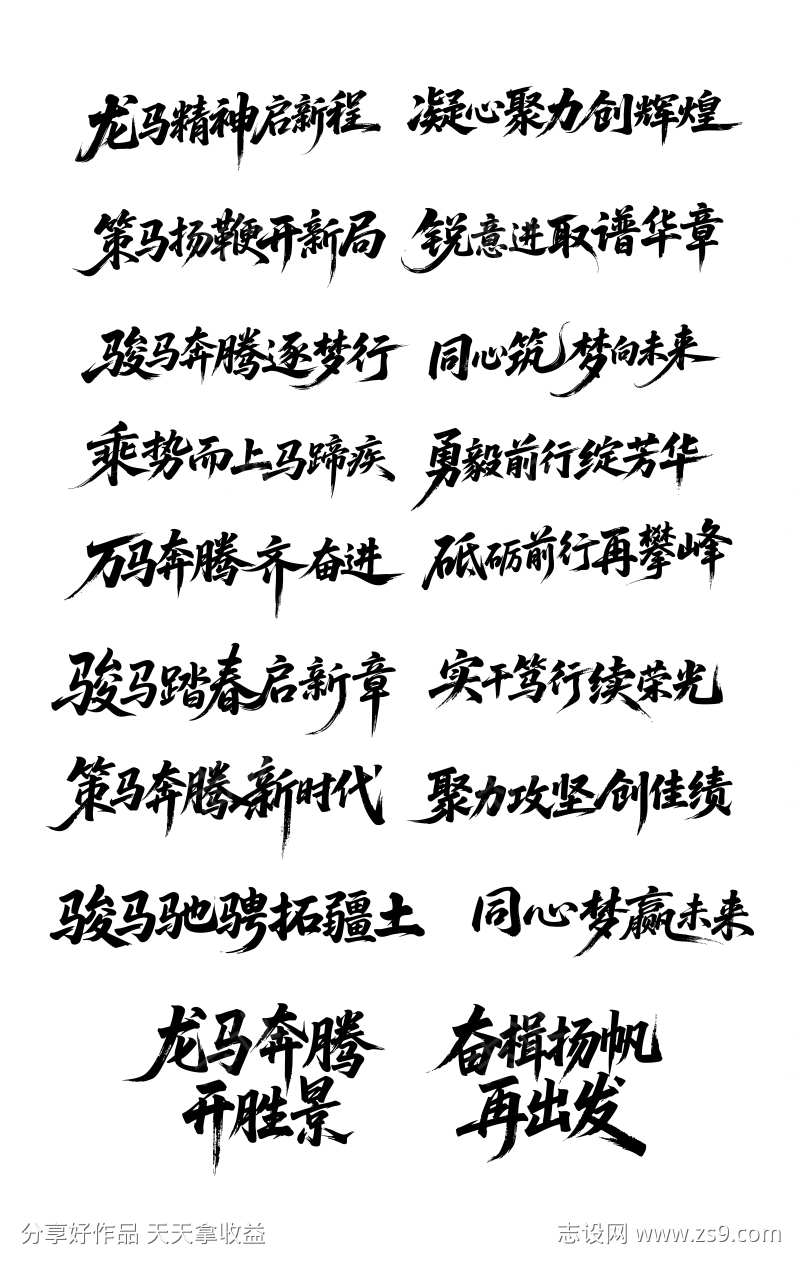 龙马精神启新程 凝心聚力创辉煌
策马扬鞭开新局 锐意进取谱华章
骏马奔腾逐梦行 同心筑梦向未来
乘势而上马蹄疾 勇毅前行绽芳华
万马奔腾齐奋进 砥砺前行再攀峰
骏马踏春启新章 实干笃行续荣光
策马奔腾新时代 聚力攻坚创佳绩
骏马驰骋拓疆土 同心梦赢未来
龙马奔腾
开胜景
奋楫扬帆
再出发
分享好作品 天天拿收益
志设网 www.zs9.com